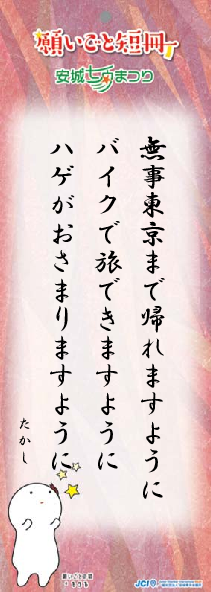 願いごと短冊
安城七夕まつり
無事東京まで帰れますように
バイクで旅できますように
ハゲがおさまりますように
たかし
JCI